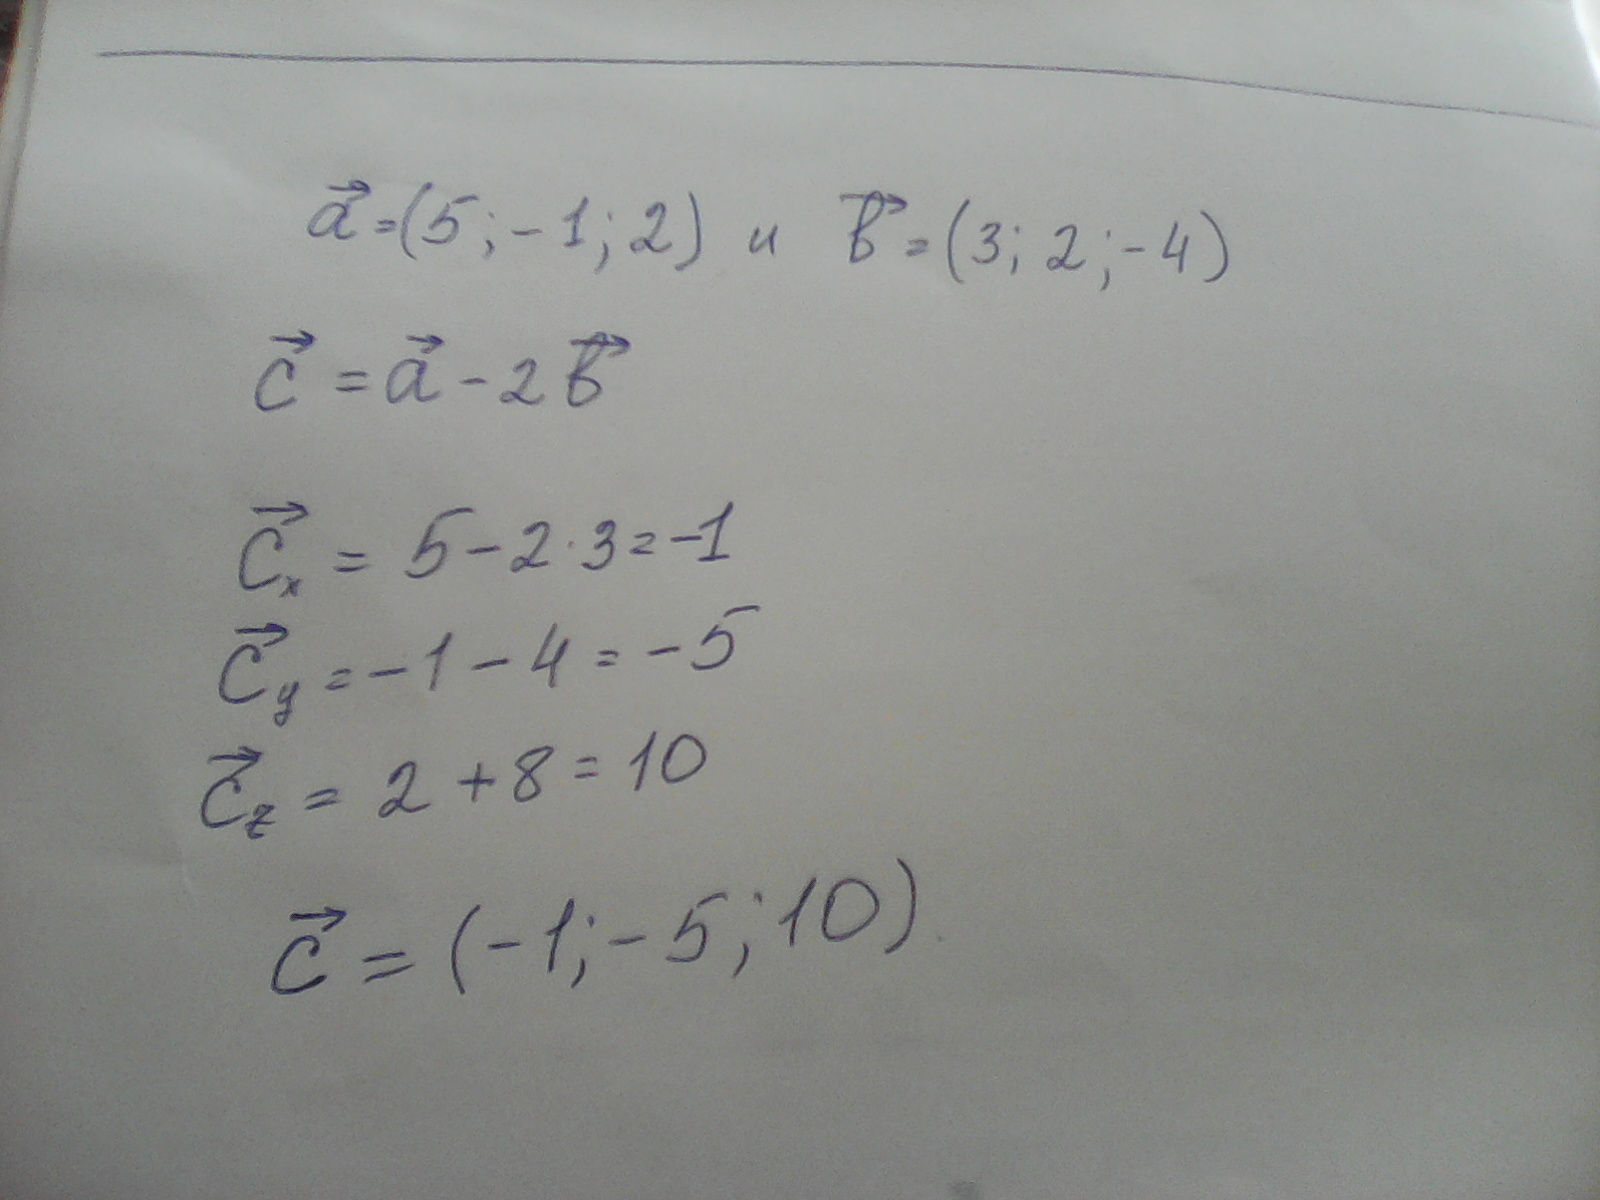 a⃗ = (5; -1; 2) и b⃗ = (3; 2; -4)
c⃗ = a⃗ - 2b⃗
c⃗ₓ = 5 - 2 · 3 = -1
c⃗_y = -1 - 4 = -5
c⃗_z = 2 + 8 = 10
c⃗ = (-1; -5; 10)